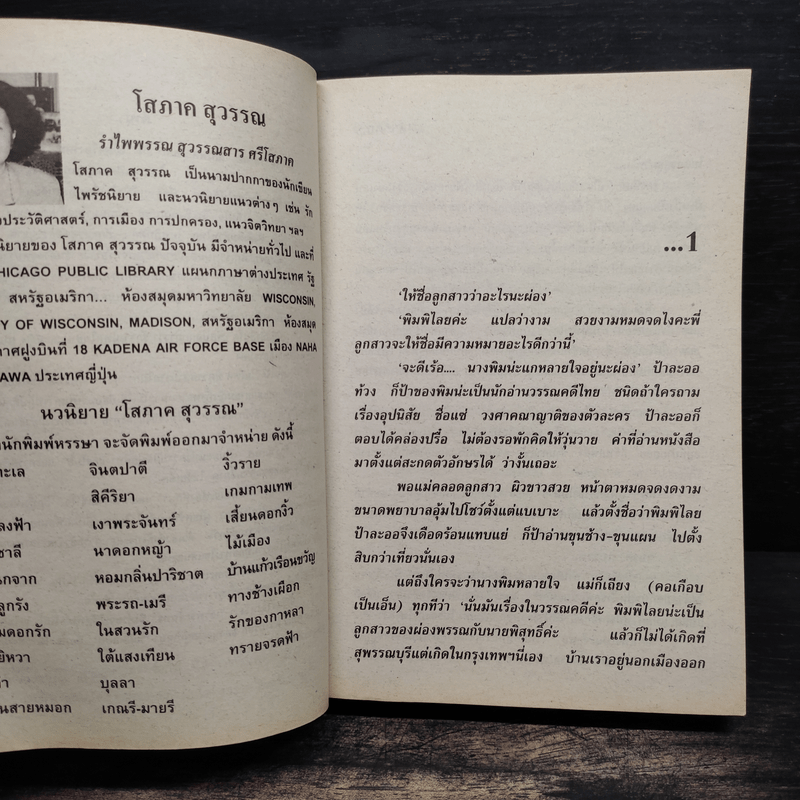 โสภาค สุวรรณ
รำไพพรรณ สุวรรณสาร ศรีโสภาค
โสภาค สุวรรณ เป็นนามปากกาของนักเขียน
ไพรัชนิยาย และนวนิยายแนวต่างๆ เช่น รัก
ประวัติศาสตร์, การเมือง การปกครอง, แนวจิตวิทยา ฯลฯ
นิยายของ โสภาค สุวรรณ ปัจจุบัน มีจำหน่ายทั่วไป และที่
HICAGO PUBLIC LIBRARY แผนกภาษาต่างประเทศ รัฐ
สหรัฐอเมริกา... ห้องสมุดมหาวิทยาลัย WISCONSIN,
Y OF WISCONSIN, MADISON, สหรัฐอเมริกา ห้องสมุด
กาศฝูงบินที่ 18 KADENA AIR FORCE BASE เมือง NAHA
AWA ประเทศญี่ปุ่น
นวนิยาย “โสภาค สุวรรณ”
นักพิมพ์หรรษา จะจัดพิมพ์ออกมาจำหน่าย ดังนี้
ทะเล จินตปาตี งิ้วราย
สิคีริยา เกมกามเทพ
ลงฟ้า เงาพระจันทร์ เสี้ยนดอกงิ้ว
ชาลี นาดอกหญ้า ไม้เมือง
นกจาก หอมกลิ่นปาริชาต บ้านแก้วเรือนขวัญ
ลูกรัง พระรถ-เมรี ทางช้างเผือก
มดอกรัก ในสวนรัก รักของกาหลา
ยิหวา ใต้แสงเทียน ทรายจรดฟ้า
า บุลลา
นสายหมอก เกณรี-มายรี
...1
‘ให้ชื่อลูกสาวว่าอะไรนะผ่อง’
‘พิมพิไลยค่ะ แปลว่างาม สวยงามหมดจดไงคะพี่
ลูกสาวจะให้ชื่อมีความหมายอะไรดีกว่านี้’
‘จะดีเร้อ.... นางพิมน่ะแกหลายใจอยู่นะผ่อง’ ป้าละออ
ท้วง ก็ป้าของพิมน่ะเป็นนักอ่านวรรณคดีไทย ชนิดถ้าใครถาม
เรื่องอุปนิสัย ชื่อแซ่ วงศาคณาญาติของตัวละคร ป้าละออก็
ตอบได้คล่องปรื๋อ ไม่ต้องรอพักคิดให้วุ่นวาย ค่าที่อ่านหนังสือ
มาตั้งแต่สะกดตัวอักษรได้ ว่างั้นเถอะ
พอแม่คลอดลูกสาว ผิวขาวสวย หน้าตาหมดจดงดงาม
ขนาดพยาบาลอุ้มไปโชว์ตั้งแต่แบเบาะ แล้วตั้งชื่อว่าพิมพิไลย
ป้าละออจึงเดือดร้อนแทบแย่ ก็ป้าอ่านขุนช้าง-ขุนแผน ไปตั้ง
สิบกว่าเที่ยวนั่นเอง
แต่ถึงใครจะว่านางพิมหลายใจ แม่ก็เถียง (คอเกือบ
เป็นเอ็น) ทุกทีว่า ‘นั่นมันเรื่องในวรรณคดีค่ะ พิมพิไลยน่ะเป็น
ลูกสาวของผ่องพรรณกับนายพิสุทธิ์ค่ะ แล้วก็ไม่ได้เกิดที่
สุพรรณบุรีแต่เกิดในกรุงเทพฯนี่เอง บ้านเราอยู่นอกเมืองออก